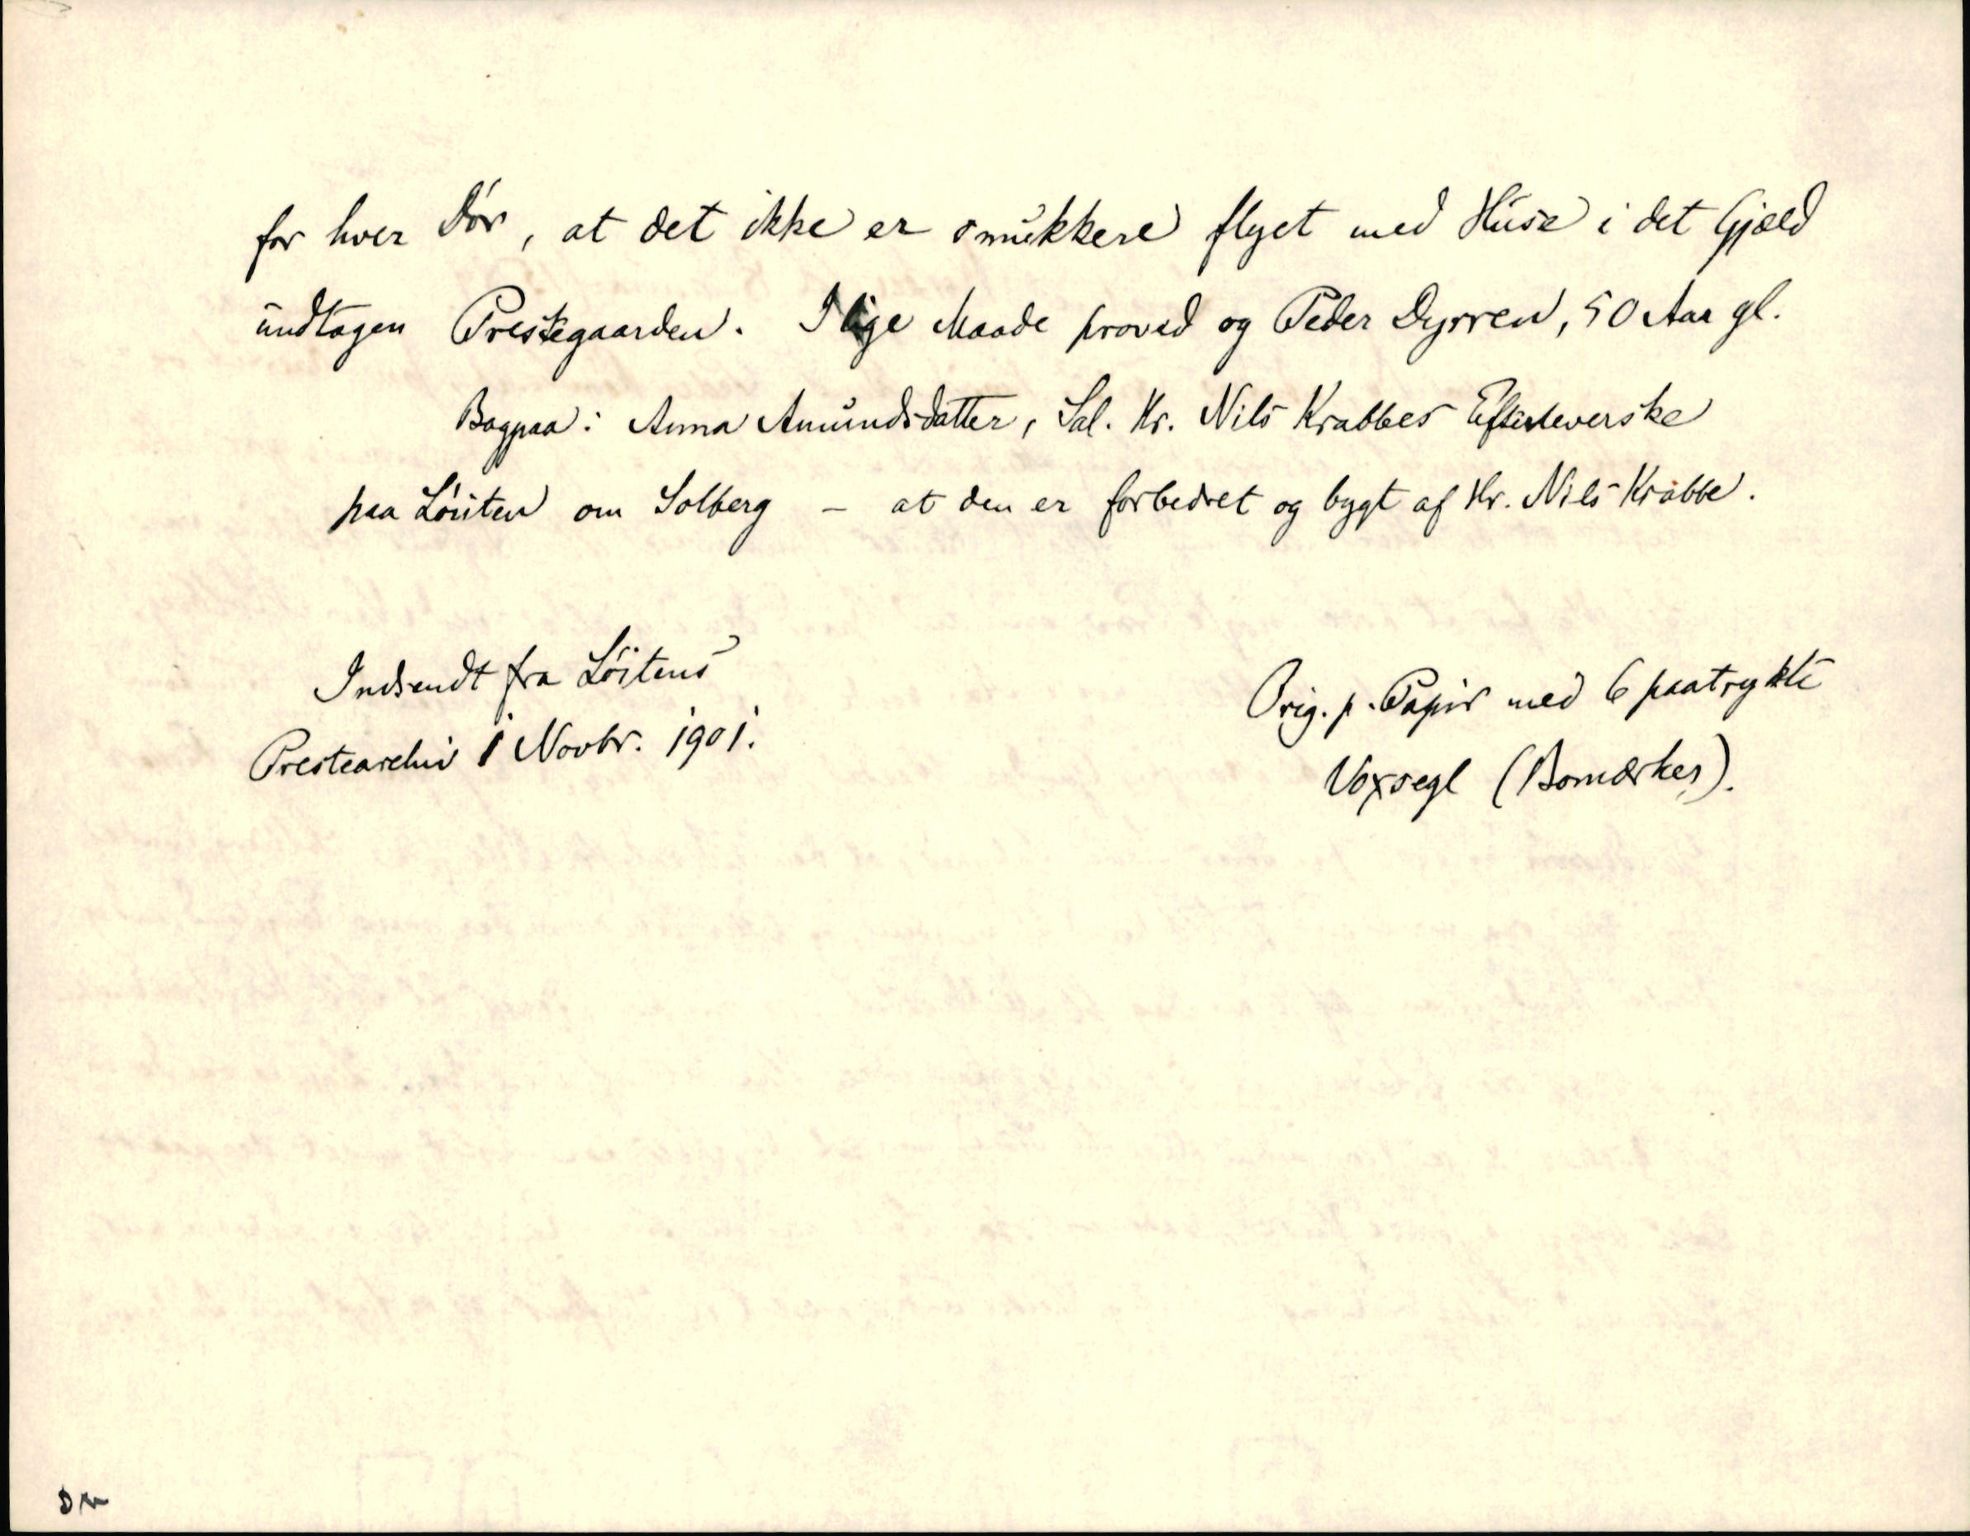 for hver Dör, at det ikke er smukkere flyet med Huse i det Gjæld
undtagen Prestegaarden. I lige Maade proved og Peder Dyrren, 50 Aar gl.
Bagpaa: Anna Amundsdatter, Sal. Hr. Nils Krabbes Efterleverske
paa Löiten om Solberg – at den er forbedret og bygt af Hr. Nils Krabbe.
Indsendt fra Löitens
Prestearchiv i Novbr. 1901.
Orig. p. Papir med 6 paatrykte
Voxsegl (Bomærker).